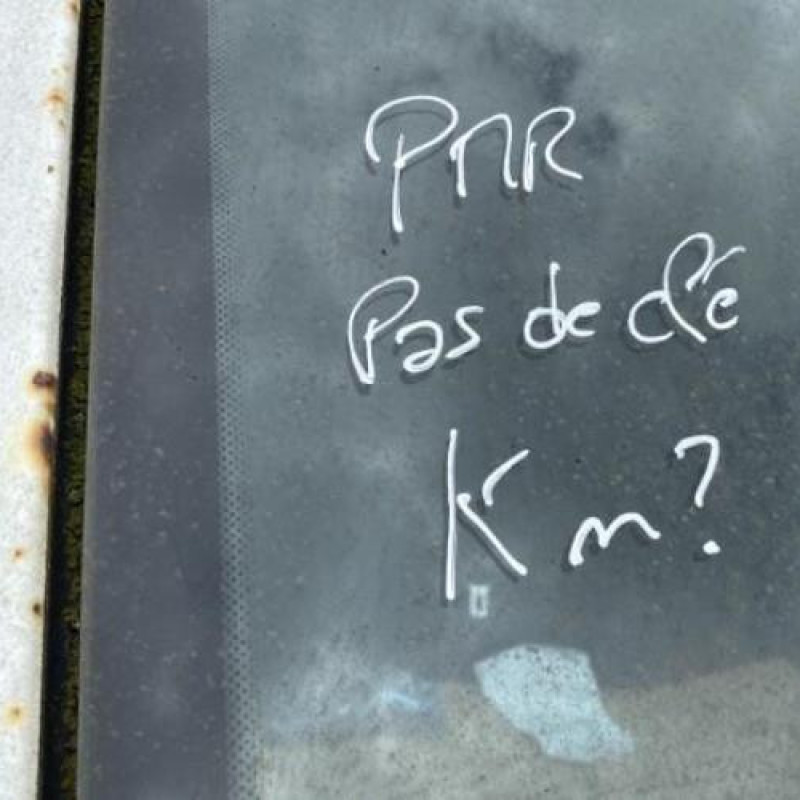 PMR
Pas de clé
Km?